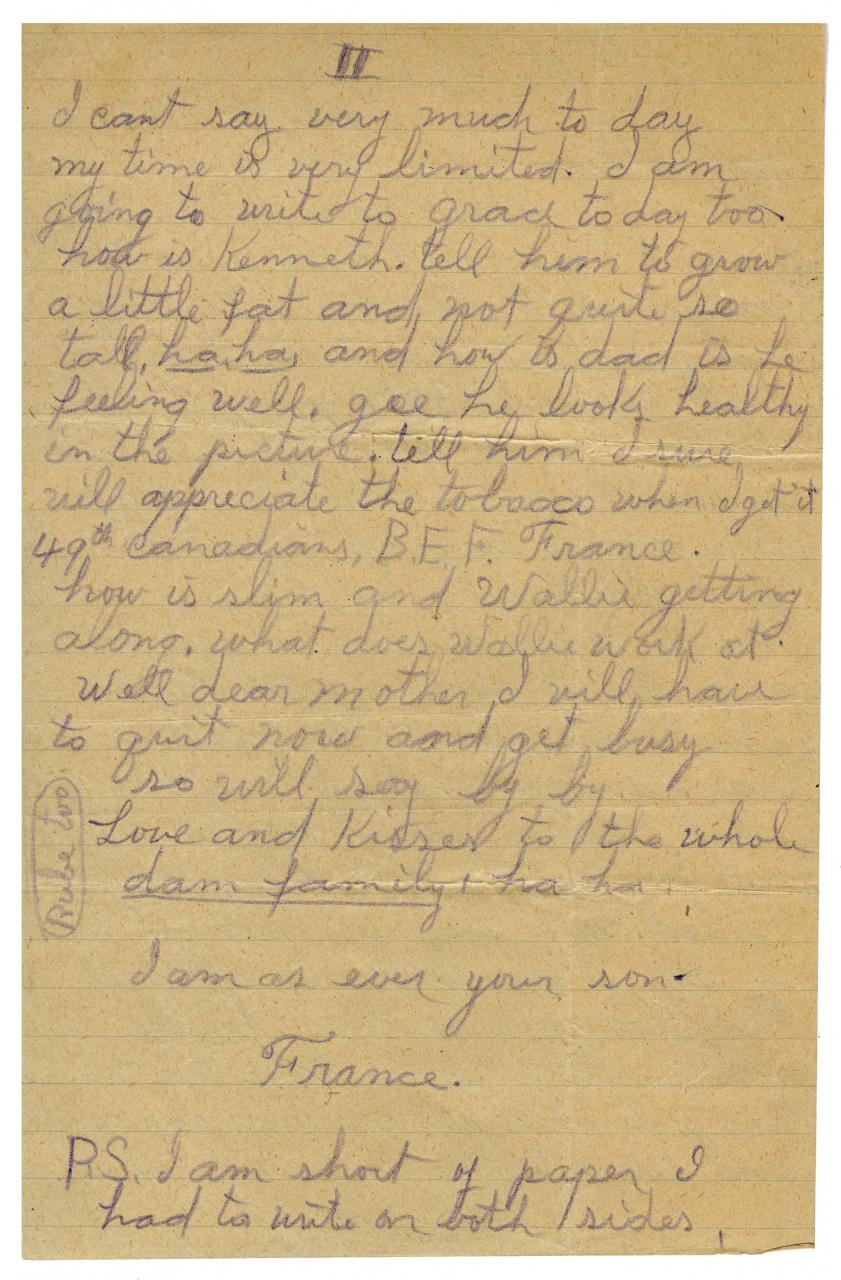 II
I cant say very much to day
my time is very limited. I am
going to write to grace to day too
how is Kenneth. tell him to grow
a little fat and not quite so
tall, ha ha, and how is dad is he
feeling well. gee he looks healthy
in the picture. tell him I sure
will appreciate the tobacco when I get it
49th Canadians, B.E.F. France.
how is slim and Wallie getting
along. what does Wallie work at.
Well dear mother I will have
to quit now and get busy
so will say by by.
Love and Kisses to the whole
dam family, ha ha.
Rube too
I am as ever your son.
France.
P.S. I am short of paper I
had to write on both sides